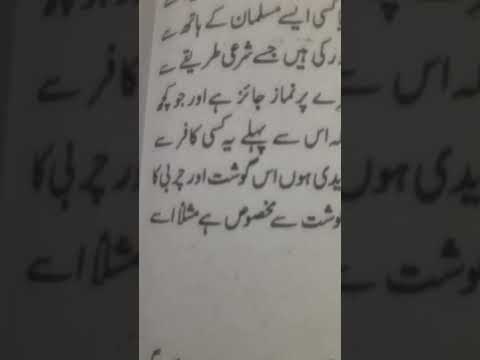 کسی ایسے مسلمان کے ہاتھ سے
ہیں جسے شرعی طریقے سے
پر نماز جائز ہے اور جو کچھ
اس سے پہلے یہ کسی کافر سے
یدی ہوں اس گوشت اور چربی کا
گوشت سے مخصوص ہے مثلاً اسے